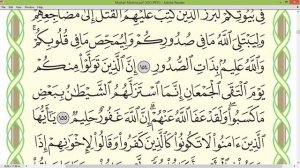 Mushaf Madinah.pdf (SECURED) - Adobe Reader
فِى بُيُوتِكُمْ لَبَرَزَ ٱلَّذِينَ كُتِبَ عَلَيْهِمُ ٱلْقَتْلُ إِلَىٰ مَضَاجِعِهِمْ
وَلِيَبْتَلِىَ ٱللَّهُ مَا فِى صُدُورِكُمْ وَلِيُمَحِّصَ مَا فِى قُلُوبِكُمْ
وَٱللَّهُ عَلِيمٌۢ بِذَاتِ ٱلصُّدُورِ ١٥٤ إِنَّ ٱلَّذِينَ تَوَلَّوْا۟ مِنكُمْ
يَوْمَ ٱلْتَقَى ٱلْجَمْعَانِ إِنَّمَا ٱسْتَزَلَّهُمُ ٱلشَّيْطَٰنُ بِبَعْضِ
مَا كَسَبُوا۟ وَلَقَدْ عَفَا ٱللَّهُ عَنْهُمْ إِنَّ ٱللَّهَ غَفُورٌ حَلِيمٌ ١٥٥ يَٰٓأَيُّهَا
ٱلَّذِينَ ءَامَنُوا۟ لَا تَكُونُوا۟ كَٱلَّذِينَ كَفَرُوا۟ وَقَالُوا۟ لِإِخْوَٰنِهِمْ إِذَا